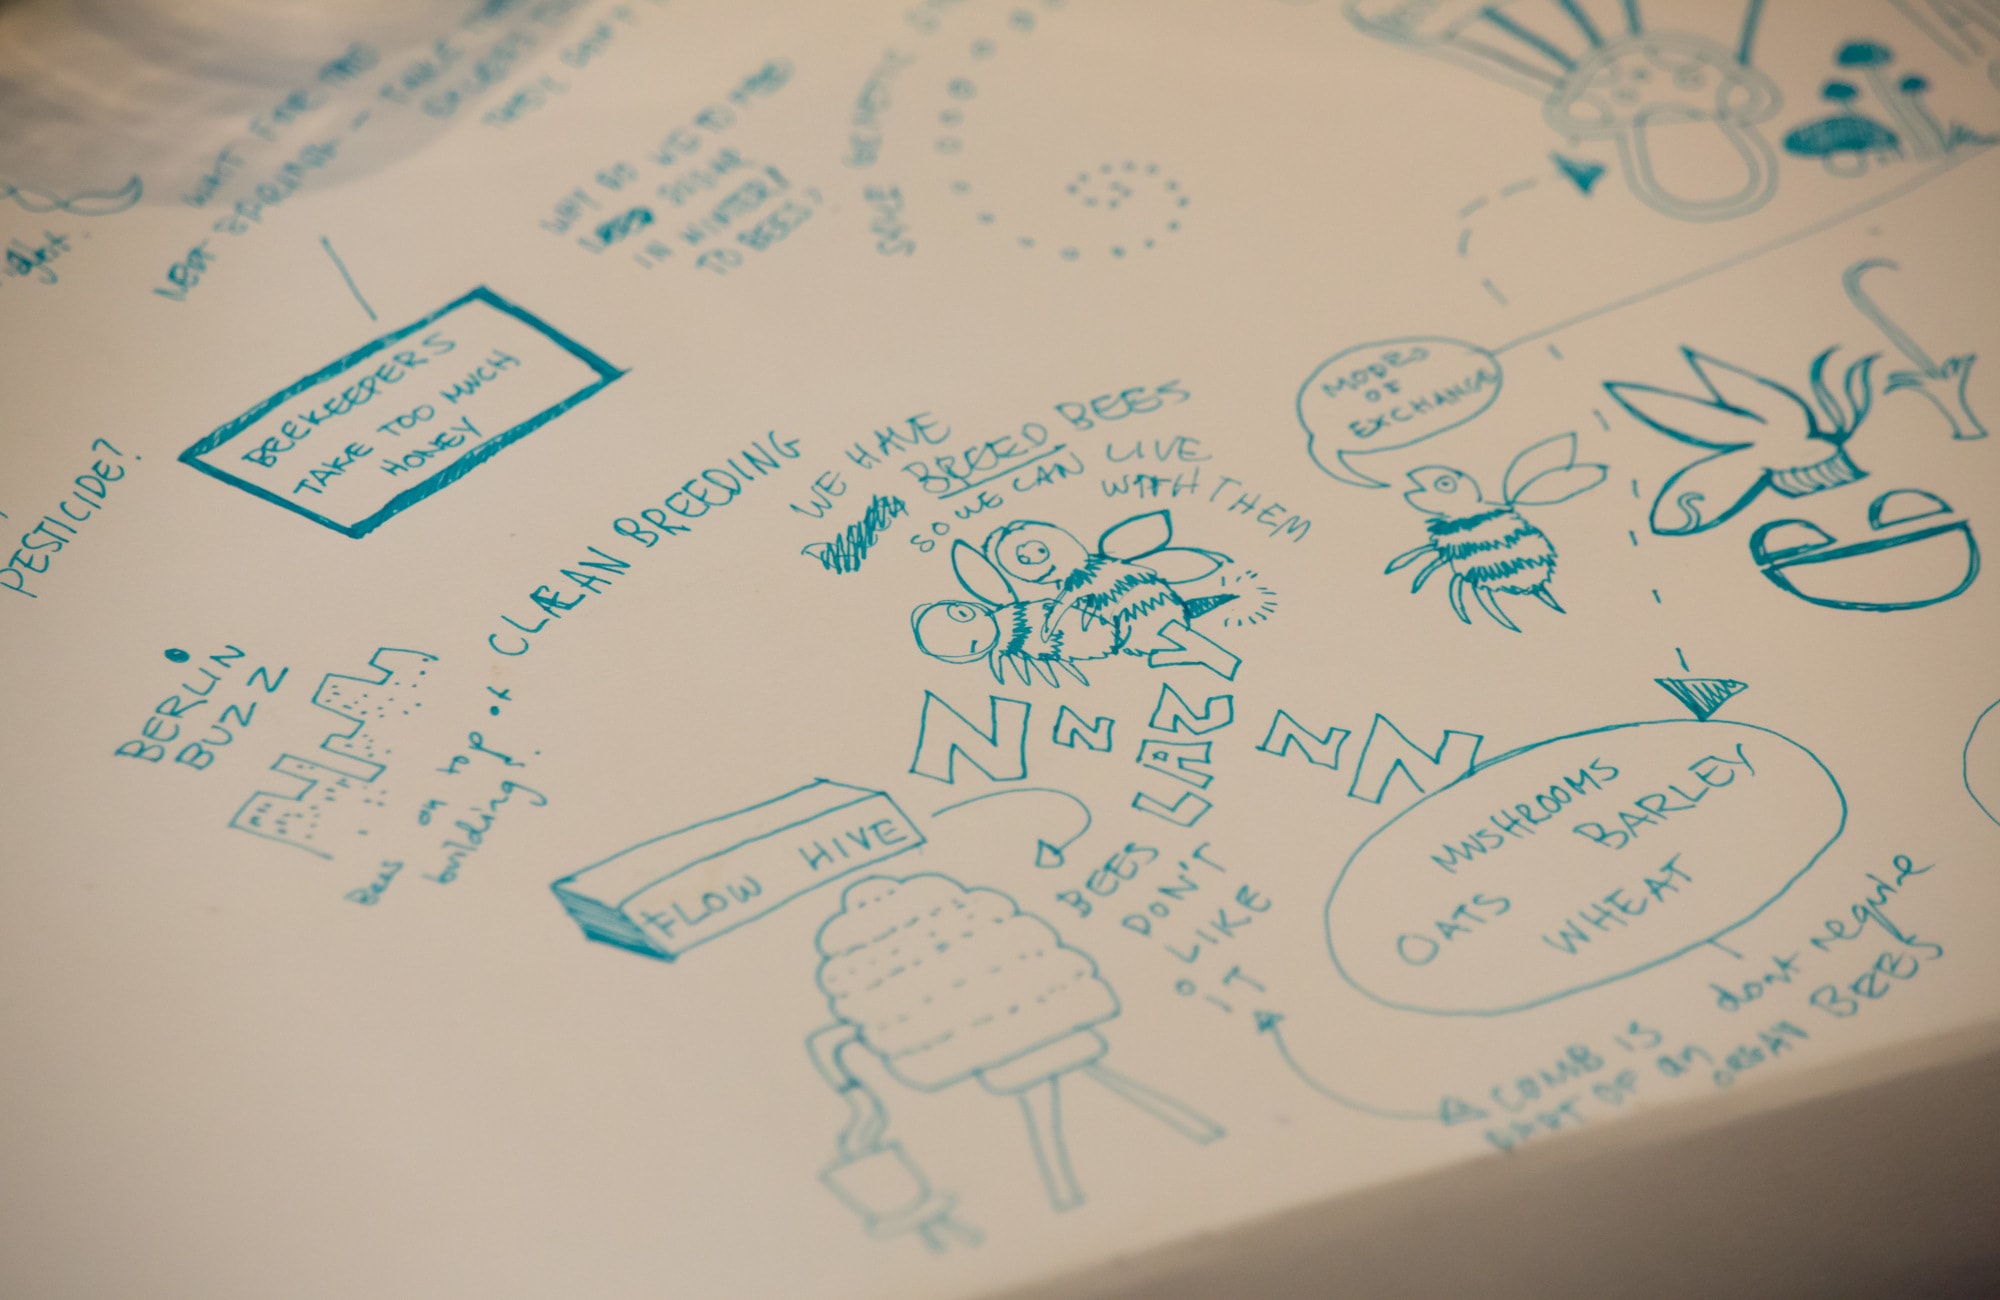 NEXT SPRING —
WHY DO
SUGAR
IN WINTER?
TO BEES?
BEEKEEPERS
TAKE TOO MUCH
HONEY
PESTICIDE?
CLEAN BREEDING
WE HAVE
BREED BEES
SO WE CAN LIVE
WITH THEM
MODES
OF
EXCHANGE
BERLIN
BUZZ
Bees
on top of
building!
N z Z N
LAZY
FLOW HIVE
BEES
DON'T
LIKE
IT
MUSHROOMS
BARLEY
OATS
WHEAT
dont require
BEES
COMB IS
PART OF an
ORGAN